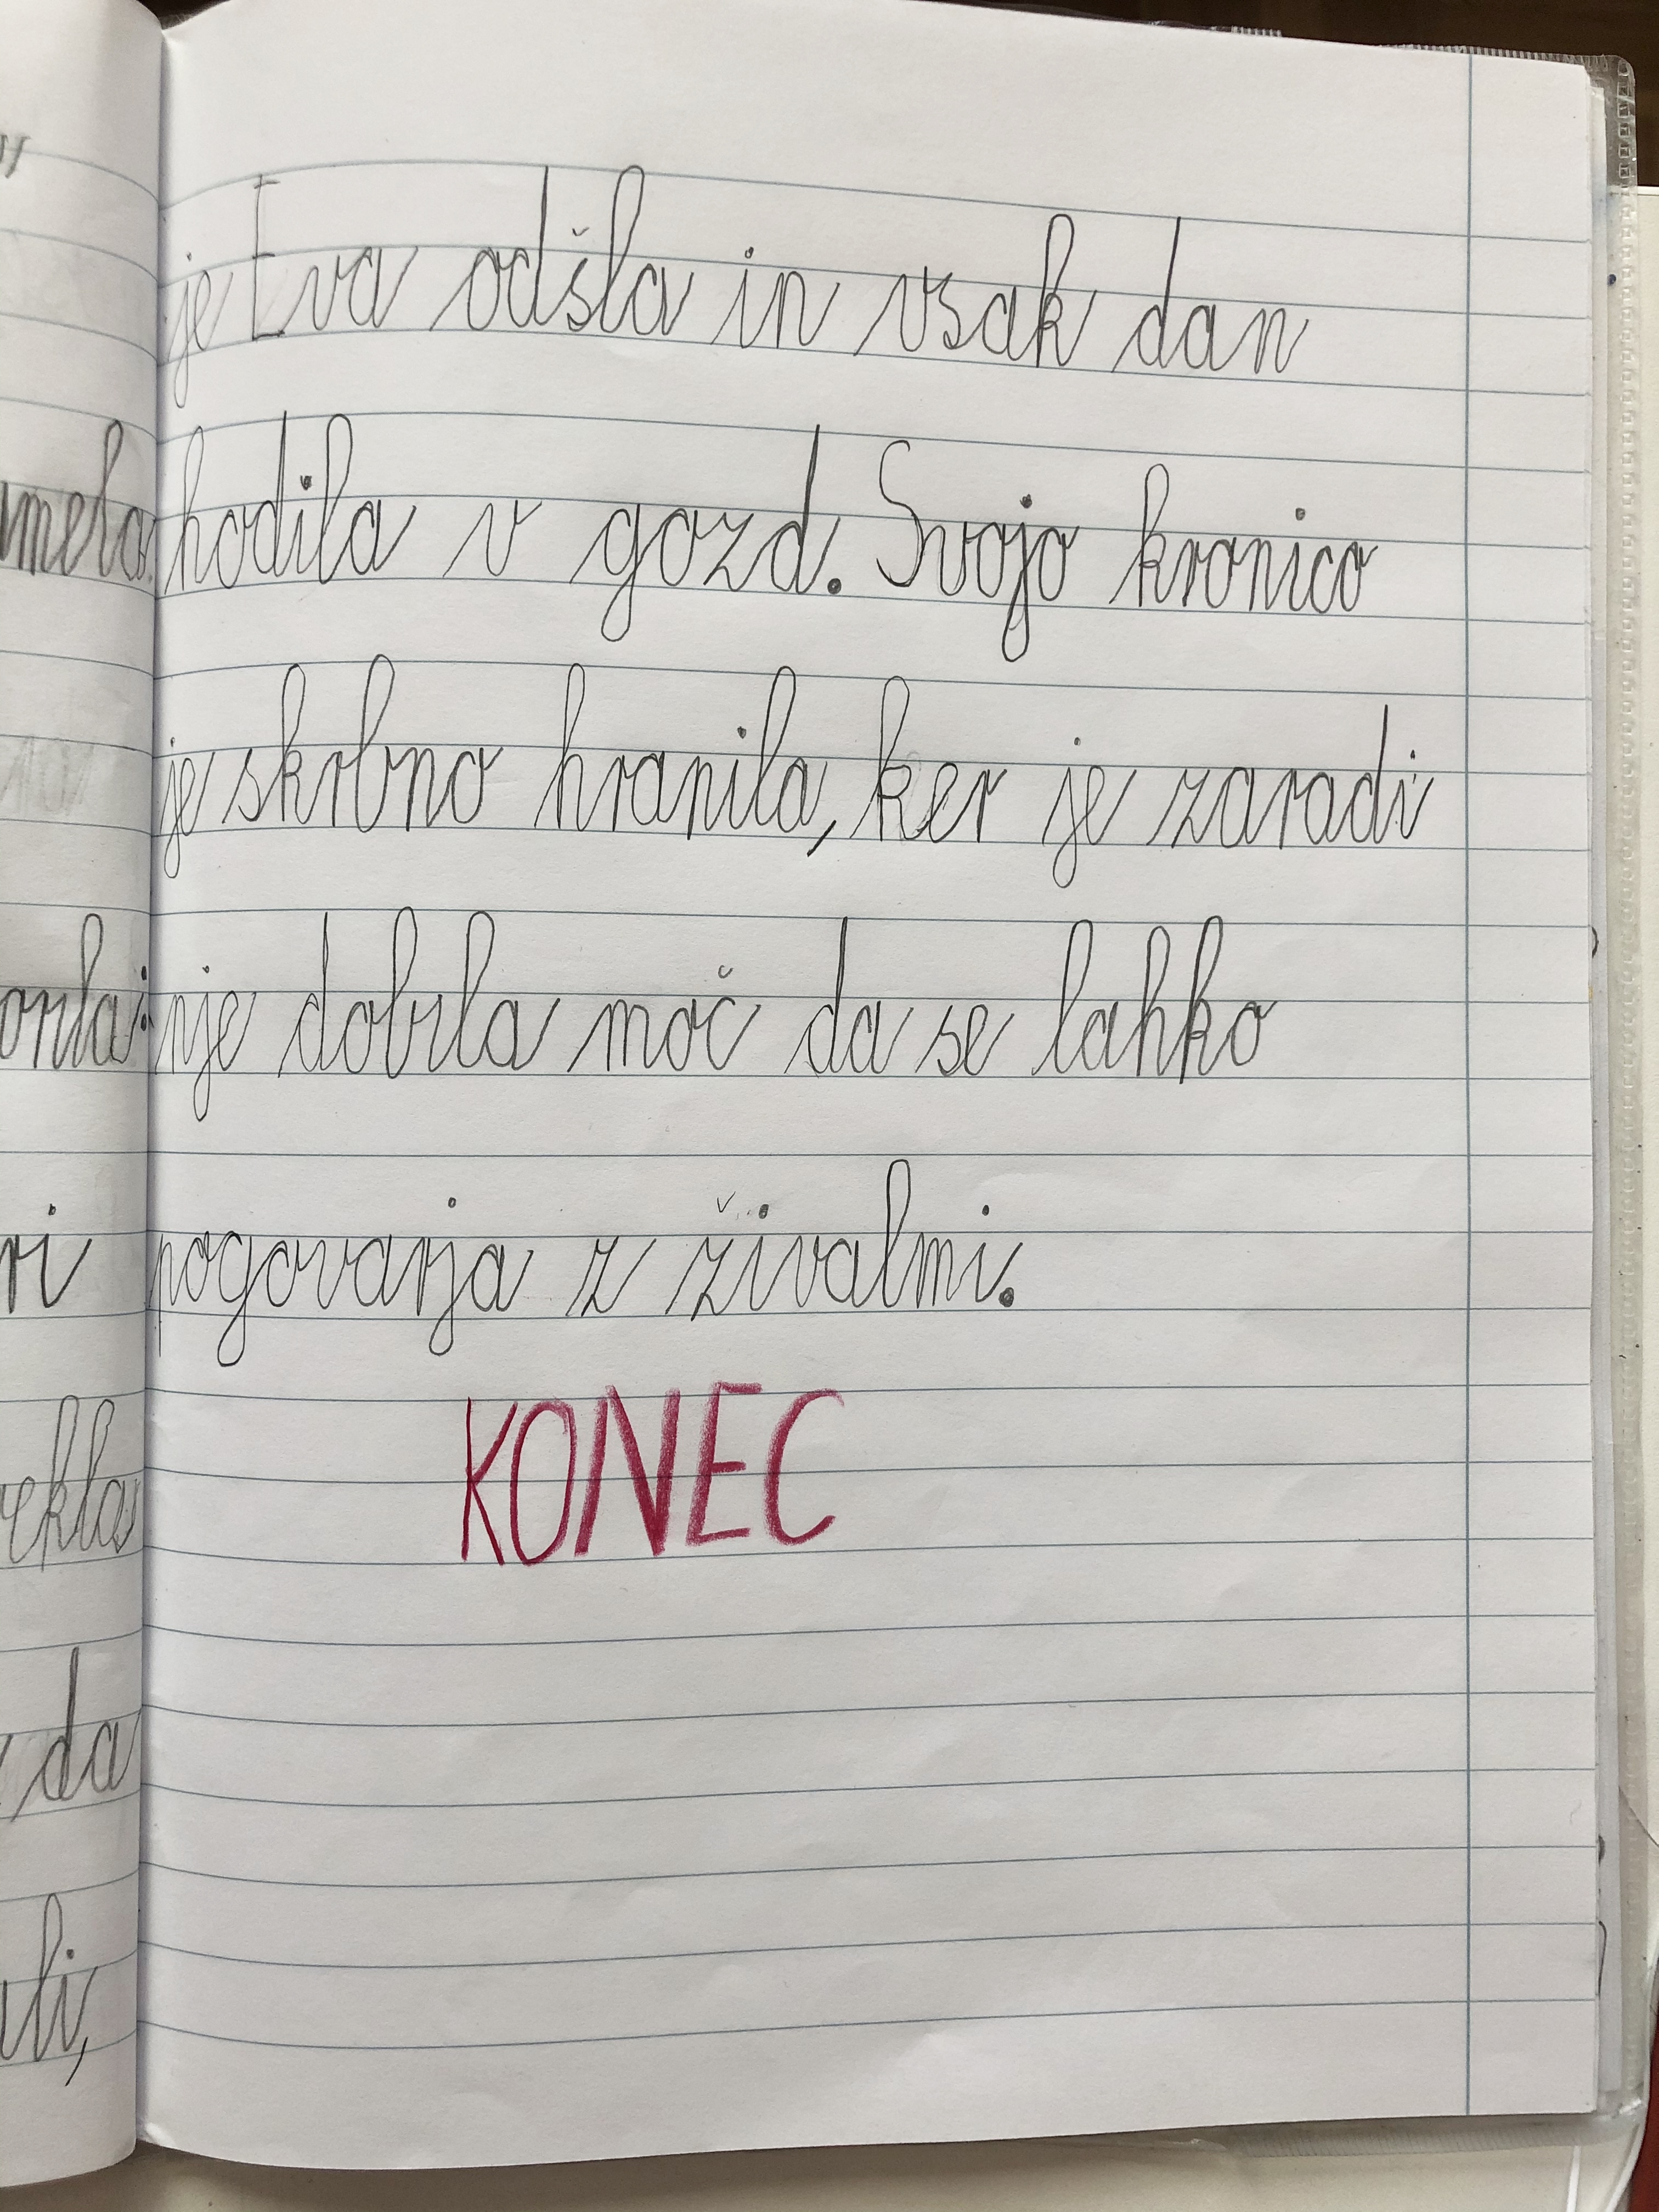 da
je Eva odšla in vsak dan
hodila v gozd. Svojo kronico
je skrbno hranila, ker je zaradi
nje dobila moč da se lahko
pogovarja z živalmi.
KONEC